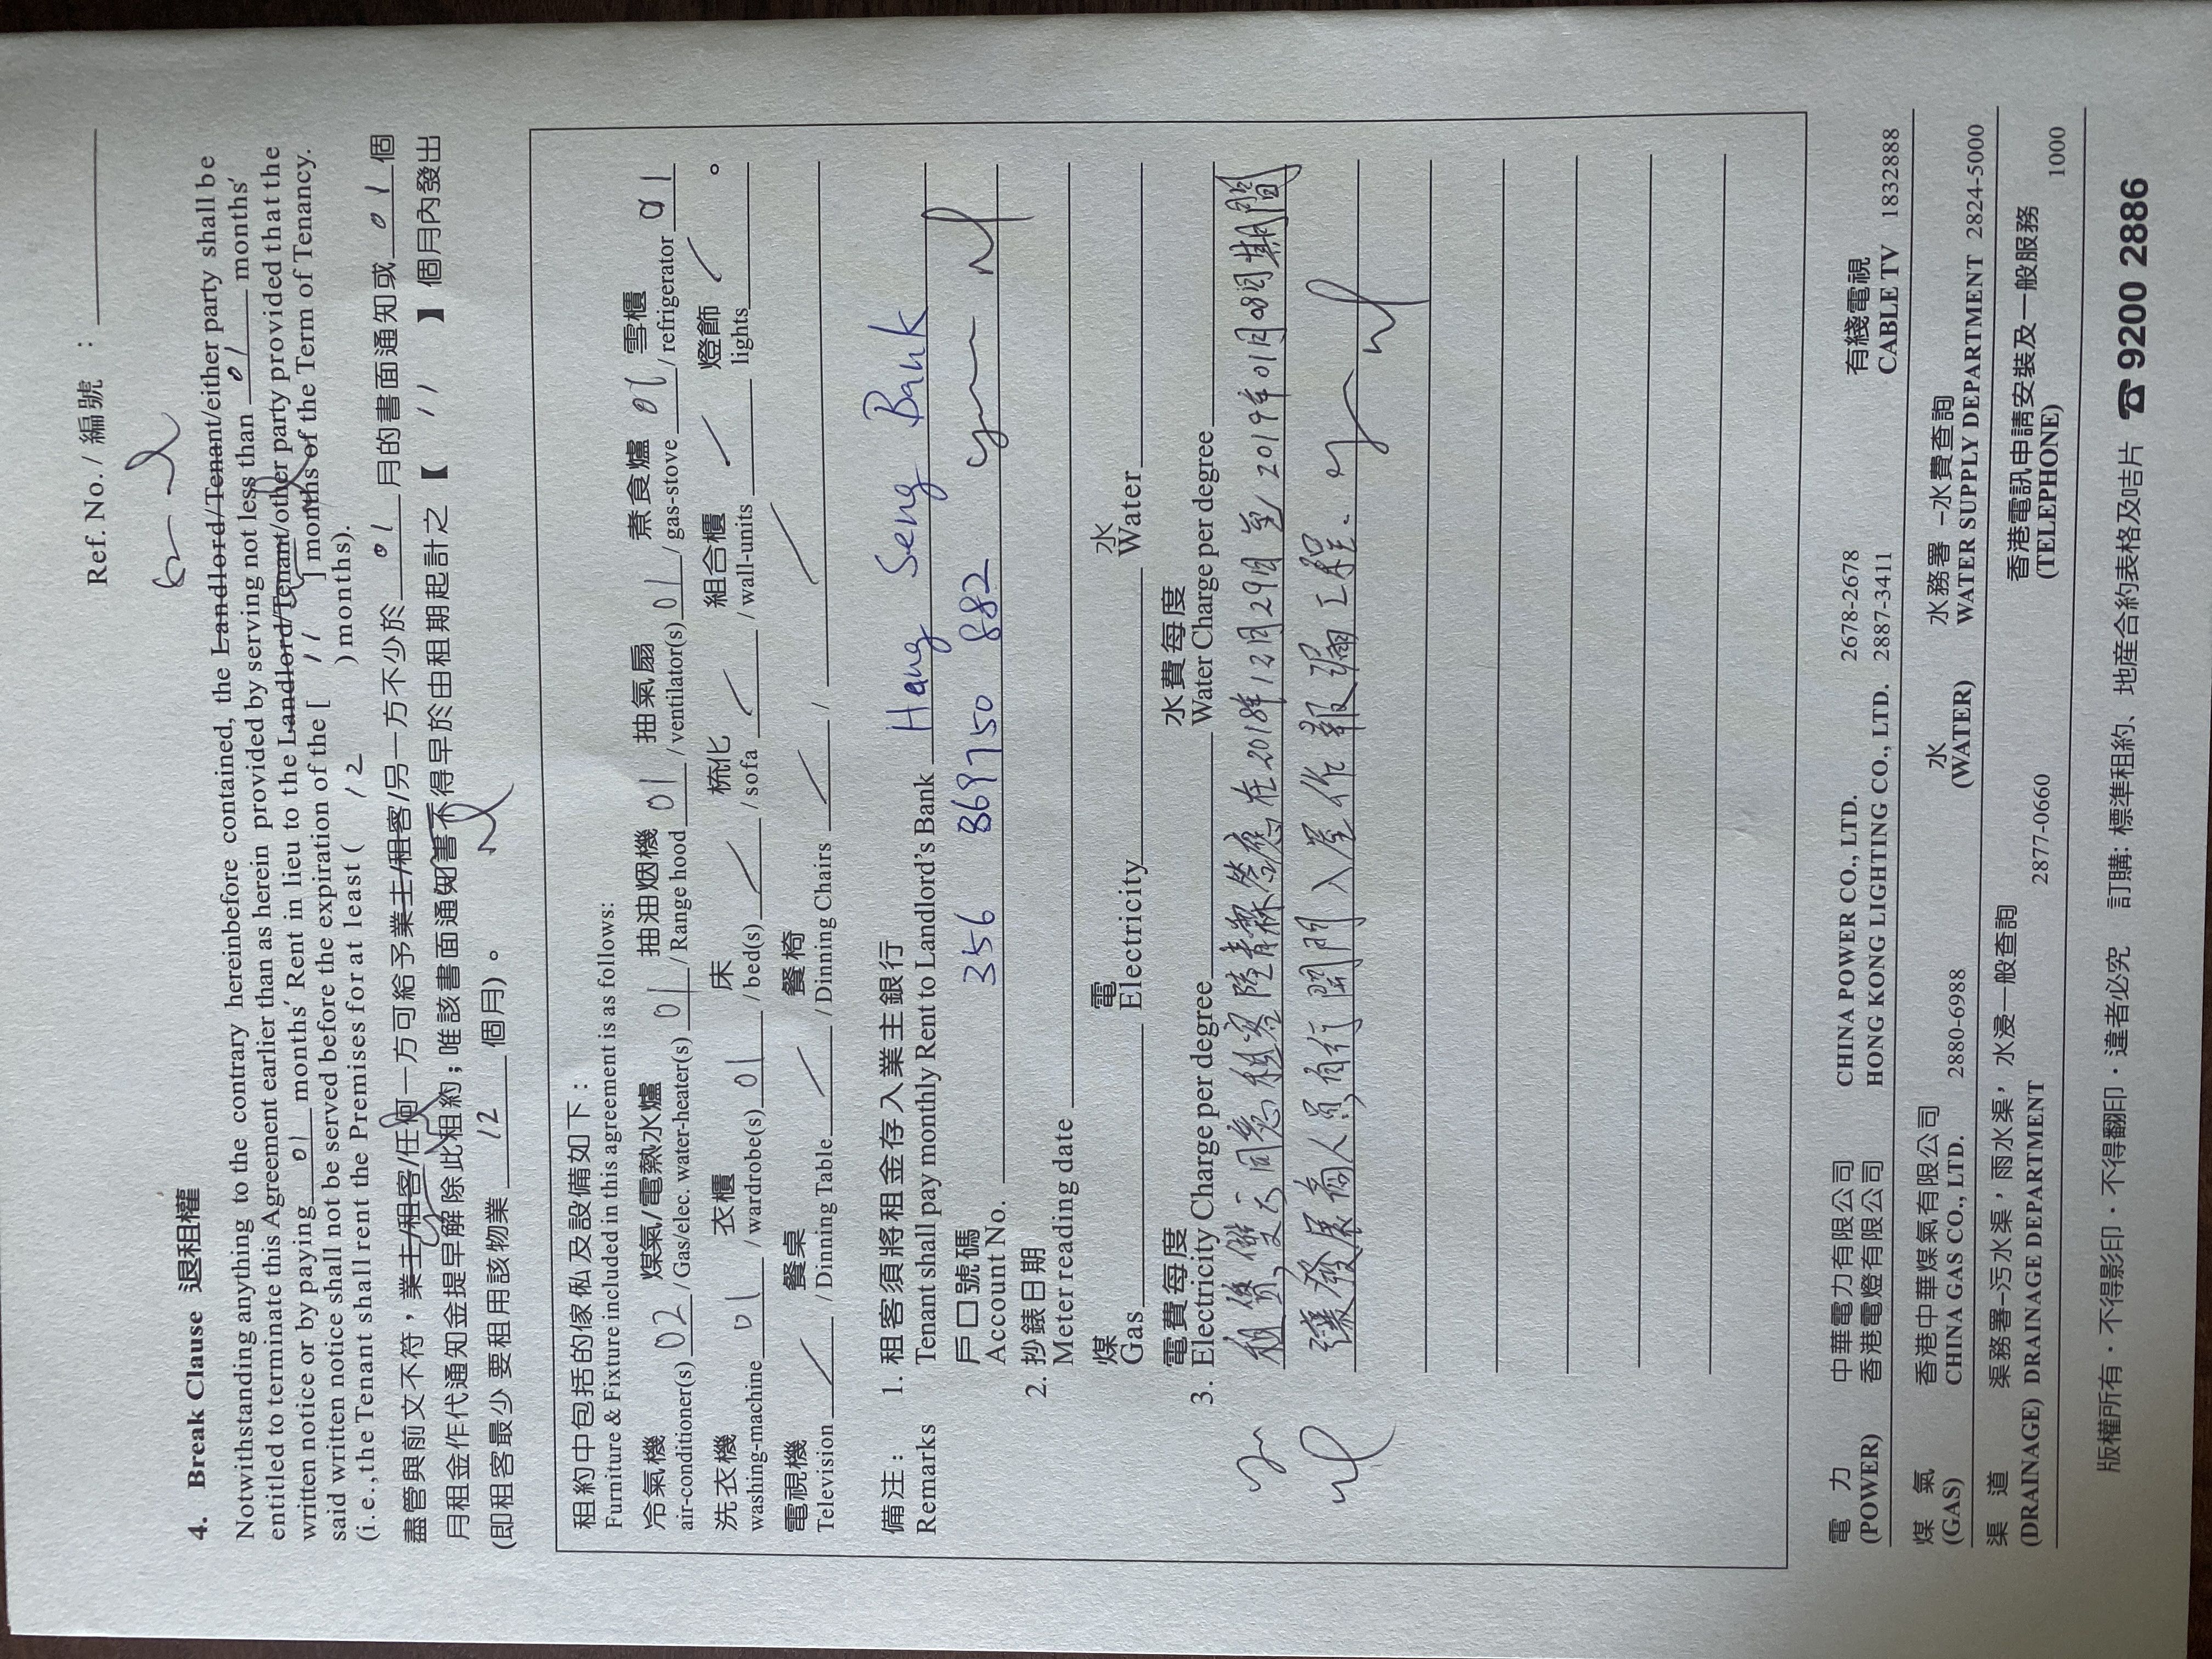 Ref. No. / 編號 :
4. Break Clause 退租權
Notwithstanding anything to the contrary hereinbefore contained, the Landlord/Tenant/either party shall be
entitled to terminate this Agreement earlier than as herein provided by serving not less than 01 months'
written notice or by paying 01 months' Rent in lieu to the Landlord/Tenant/other party provided that the
said written notice shall not be served before the expiration of the [ 11 ] months of the Term of Tenancy.
(i.e., the Tenant shall rent the Premises for at least ( 12 ) months).
盡管與前文不符，業主/租客/任何一方可給予業主/租客/另一方不少於 01 月的書面通知或 01 個
月租金作代通知金提早解除此租約；唯該書面通知書不得早於由租期起計之【 11 】個月內發出
(即租客最少要租用該物業 12 個月)。
租約中包括的傢俬及設備如下：
Furniture & Fixture included in this agreement is as follows:
冷氣機 煤氣/電熱水爐 抽油烟機 抽氣扇 煮食爐 雪櫃
air-conditioner(s) 02 / Gas/elec. water-heater(s) 01 / Range hood 01 / ventilator(s) 01 / gas-stove 01 / refrigerator 01
洗衣機 衣櫃 床 梳化 組合櫃 燈飾 。
washing-machine 01 / wardrobe(s) 01 / bed(s) / sofa / wall-units / lights
電視機 餐桌 餐椅
Television / Dinning Table / Dinning Chairs /
備注： 1. 租客須將租金存入業主銀行
Remarks Tenant shall pay monthly Rent to Landlord's Bank Hang Seng Bank
戶口號碼
Account No. 356 869750 882
2. 抄錶日期
Meter reading date
煤 電 水
Gas Electricity Water
電費每度 水費每度
3. Electricity Charge per degree Water Charge per degree
租賃雙方同意租客陸書霖答應在2018年12月29日至2019年01月08日期間
讓發展商人員自行開門入屋作執漏工程.
電力 中華電力有限公司 CHINA POWER CO., LTD. 2678-2678 有綫電視
(POWER) 香港電燈有限公司 HONG KONG LIGHTING CO., LTD. 2887-3411 CABLE TV 1832888
煤氣 香港中華煤氣有限公司 水 水務署-水費查詢
(GAS) CHINA GAS CO., LTD. 2880-6988 (WATER) WATER SUPPLY DEPARTMENT 2824-5000
渠道 渠務署-污水渠，雨水渠，水浸一般查詢 香港電訊申請安裝及一般服務
(DRAINAGE) DRAINAGE DEPARTMENT 2877-0660 (TELEPHONE) 1000
版權所有·不得影印·不得翻印·違者必究 訂購: 標準租約、地產合約表格及咭片 ☎ 9200 2886